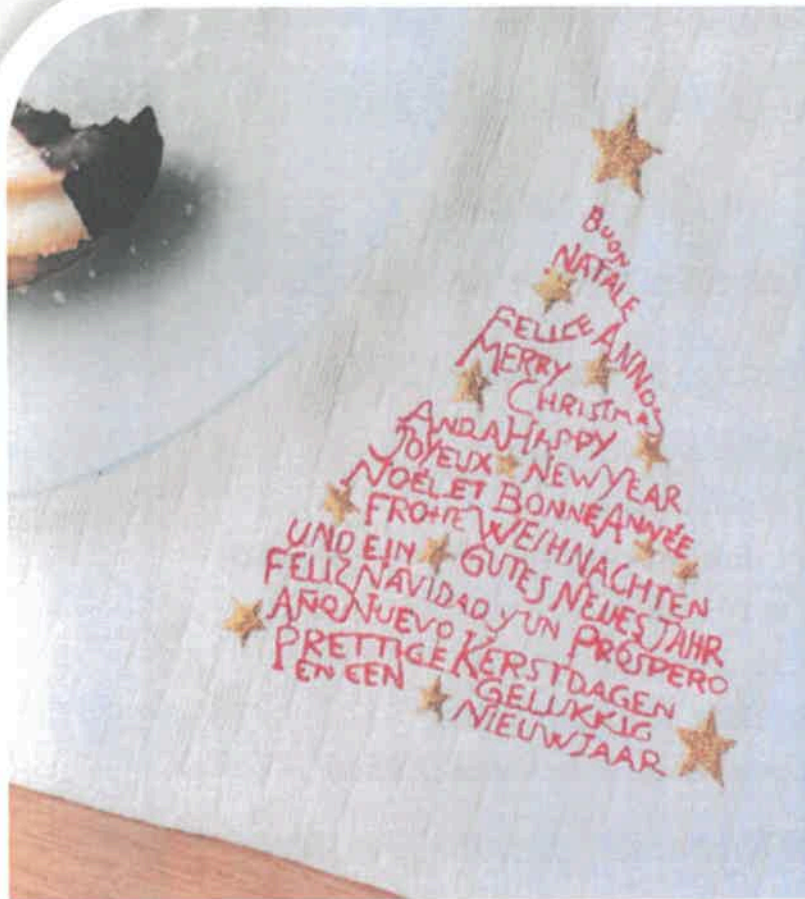 BUON
NATALE
FELICE ANNO
MERRY
CHRISTMAS
AND A HAPPY
JOYEUX NEW YEAR
NOËL ET BONNE ANNÉE
FROHE WEIHNACHTEN
UND EIN GUTES NEUES JAHR
FELIZ NAVIDAD Y UN PROSPERO
AÑO NUEVO KERSTDAGEN
PRETTIGE
EN EEN GELUKKIG
NIEUWJAAR